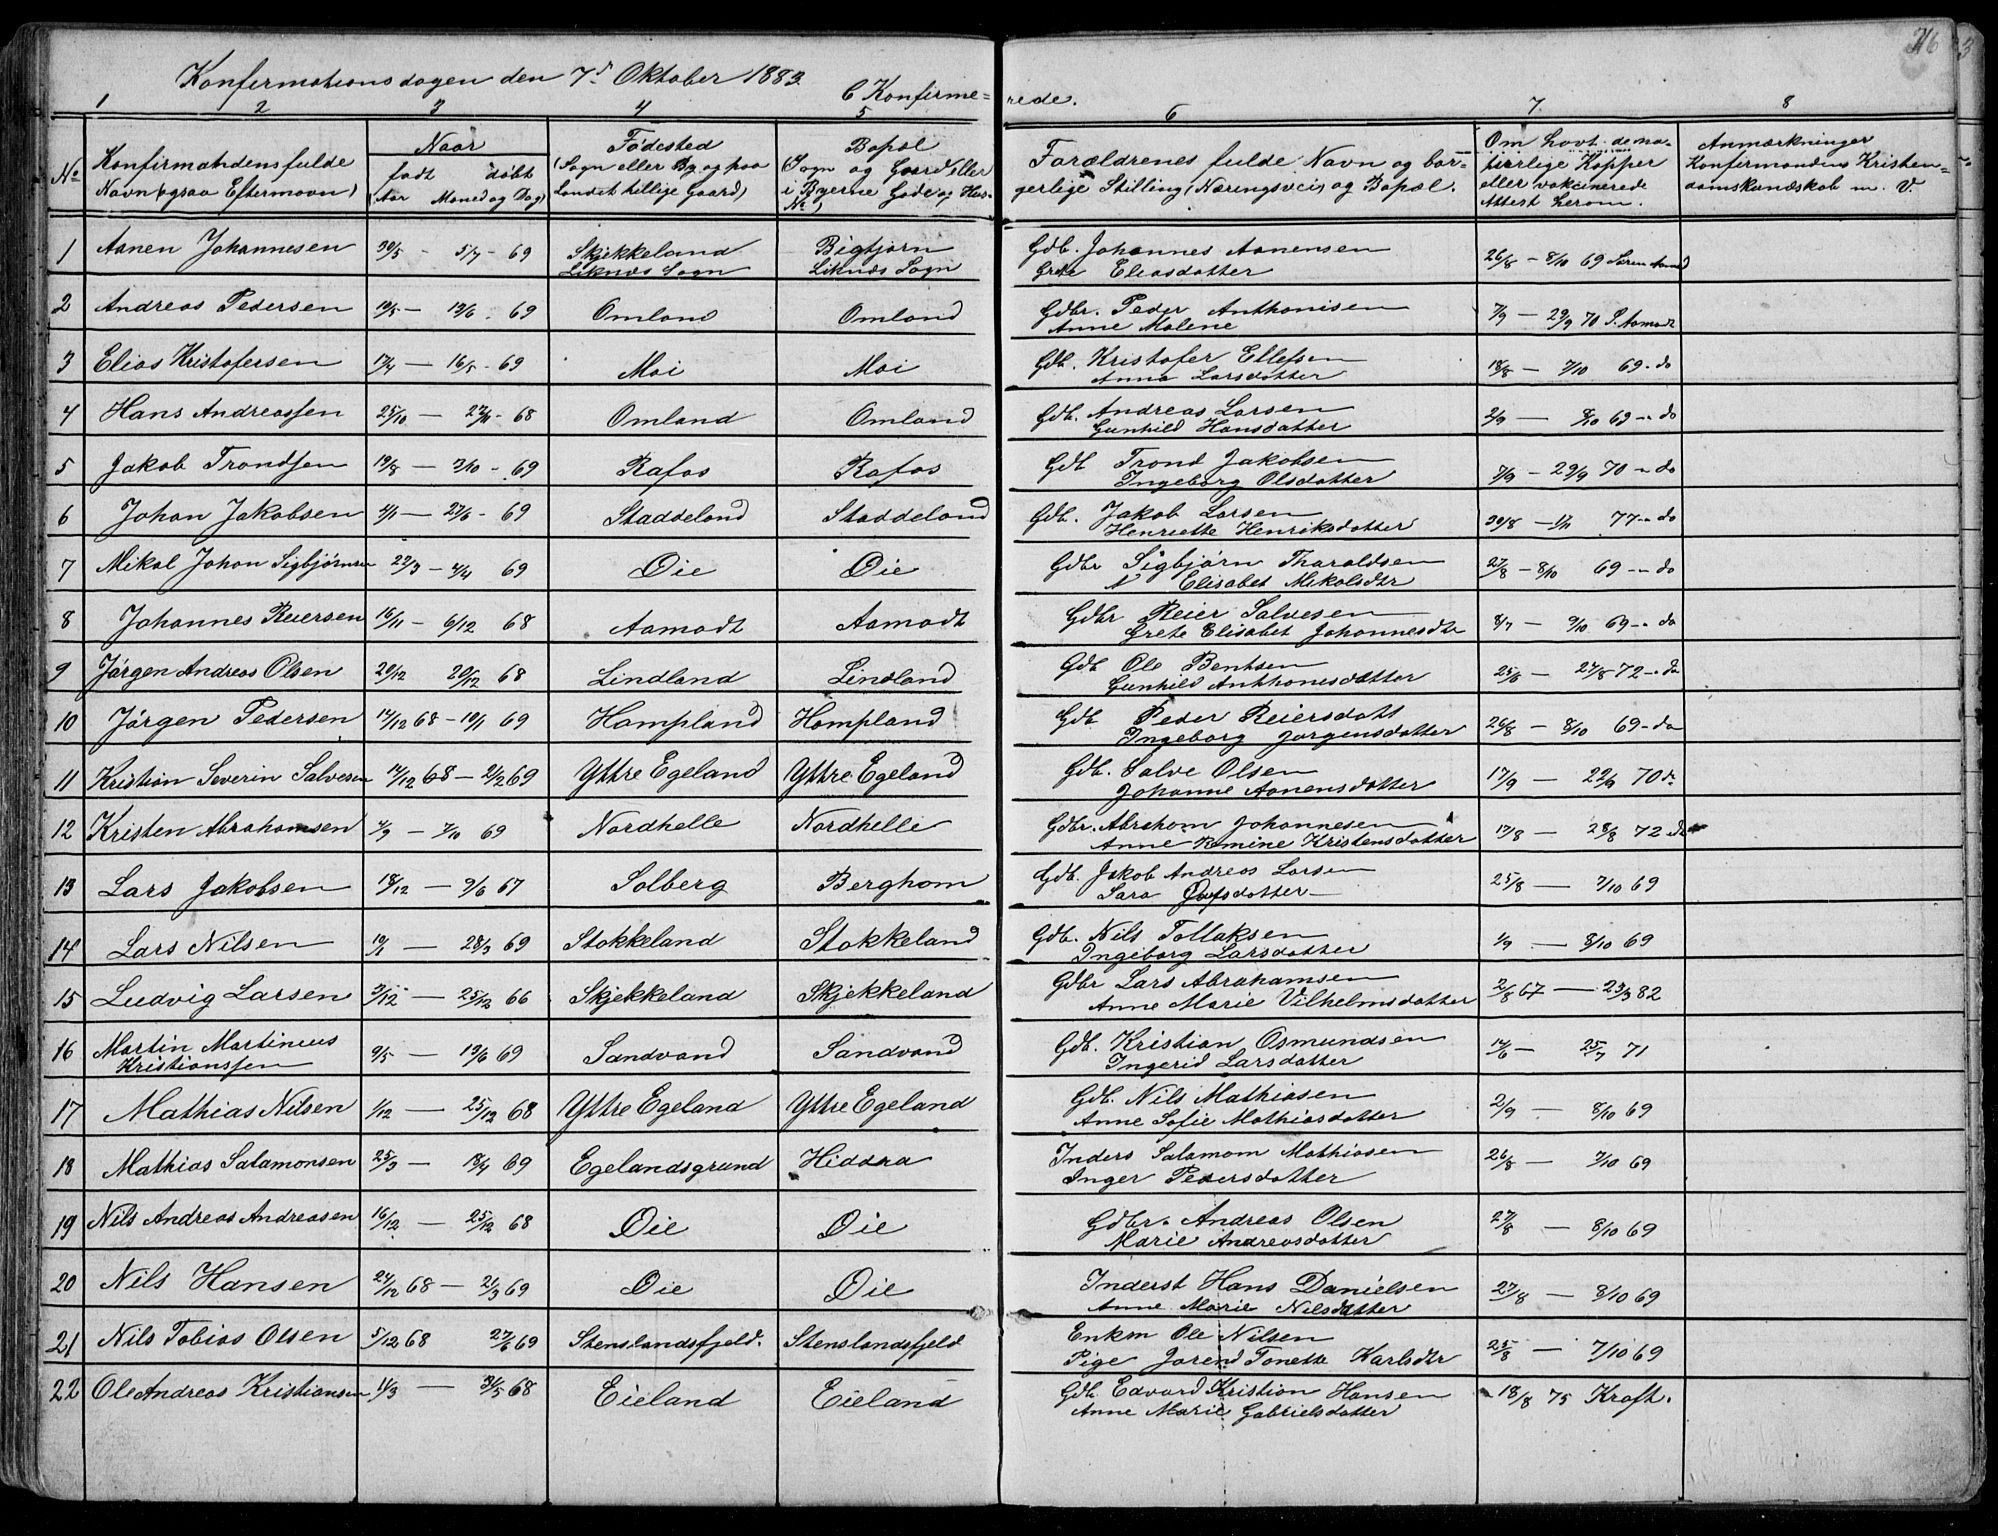 76
Konfirmationsdagen den 7d Oktober 1883. C Konfirmerede.
1 2 3 4 5 6 7. 8
No Konfirmandens fulde Navn (ogsaa Efternavn)
Naar
født døbt
Aar Maned og Dag
Fødested
(Sogn eller By og paa
Landet tillige Gaard)
Bopæl
(Sogn og Gaard eller
i Byerne Gade og Hus-
No)
Forældrenes fulde Navn og bor-
gerlige Stilling (Næringsvei) og Bopæl.
Om havt de na-
turlige Kopper
eller vakcinerede
Attest herom.
Anmærkninger
Konfirmandens Kristen-
domskundskab m. V.
1 Aanen Johannesen 30/5 - 5/7 - 69 Skjekkeland Bigbjørn Gdb. Johannes Aanensen 26/8 - 8/10 69
Liknæs Sogn Liknæs Sogn Grete Eliasdatter
2 Andreas Pedersen 19/5 - 13/6 - 69 Omland Omland Gdbr. Peder Anthonisen 7/9 - 29/9 70 P. Aamodt
Anne Malene
3 Elias Kristofersen 17/4 - 16/5 - 69 Moi Moi Gdb. Kristofer Ellefsen 18/8 - 7/10 69 - do
Anna Larsdatter
4 Hans Andreassen 25/10 - 22/11 - 68 Omland Omland Gdb. Andreas Larsen 2/9 - 8/10 69 - do
Gunhild Hansdatter
5 Jakob Trondsen 19/8 - 3/10 - 69 Rafos Rafos Gdb Trond Jakobsen 7/9 - 29/9 70 - do
Ingeborg Olsdatter
6 Johan Jakobsen 4/1 - 27/6 - 69 Staddeland Staddeland Gdb. Jakob Larsen 30/8 - 77 - do
Henriette Henriksdatter
7 Mikal Johan Sigbjørnsen 22/3 - 4/4 69 Øie Øie Gdbr Sigbjørn Tharaldsen 27/8 - 8/10 69 - do
Elisabet Mikalsdtr
8 Johannes Reiersen 16/11 - 6/12 68 Aamodt Aamodt Gdbr Reier Salvesen 8/7 - 9/10 69 - do
Grete Elisabet Johannesdtr
9 Jørgen Andreas Olsen 20/12 - 20/12 68 Lindland Lindland Gdb Ole Bentsen 25/6 - 27/8 72 - do
Gunhild Anthonesdatter
10 Jørgen Pedersen 14/12 68 - 10/1 69 Hampland Hompland Gdb Peder Reiersdatt 26/8 - 8/10 69 - do
Ingeborg Jørgensdatter
11 Kristian Severin Salvesen 14/12 68 - 2/2 69 Yttre Egeland Yttre Egeland Gdb. Salve Olsen 17/9 - 22/9 70 do
Johanne Aanensdatter
12 Kristen Abrahamsen 4/9 - 7/10 69 Nordhelle Nordhelle Gdbr. Abraham Johannesen 17/8 - 28/8 72 do
Anne Romine Kristensdatter
13 Lars Jakobsen 18/12 - 9/6 67 Solberg Berghom Gdb. Jakob Andreas Larsen 25/8 - 7/10 69
Sara
14 Lars Nilsen 19/1 - 28/3 69 Stokkeland Stokkeland Gdb. Nils Tollaksen 1/9 - 8/10 69
Ingeborg Larsdatter
15 Ludvig Larsen 3/12 - 25/12 66 Skjekkeland Skjekkeland Gdbr Lars Abrahamsen 2/8 67 - 23/3 82
Anne Marie Vilhelmsdatter
16 Martin Martinius 9/5 - 13/6 69 Sandvand Sandvand Gdb. Kristian Osmundsen 14/6 - 25/7 71
Kristianssen Ingerid Larsdatter
17 Mathias Nilsen 1/12 - 25/12 68 Yttre Egeland Yttre Egeland Gdb. Nils Mathiasen 2/9 - 8/10 69
Anne Sofie Mathiasdatter
18 Mathias Salamonsen 25/3 - 18/4 69 Egelandsgrund Hiddra Inders Salamom Mathiasen 26/8 - 7/10 69
Inger Pedersdatter
19 Nils Andreas Andreasen 16/12 - 25/12 68 Øie Øie Gdbr. Andreas Olsen 27/8 - 8/10 69
Marie Andreasdatter
20 Nils Hansen 24/12 68 - 21/3 69 Øie Øie Inderst Hans Danielsen 27/8 - 8/10 69
Anne Marie Nilsdatter
21 Nils Tobias Olsen 5/12 68 27/6 69 Stenslandsfjeld. Stenslandsfjeld Enkm Ole Nilsen 25/8 - 7/10 69
Pige Jorend Tonette Karlsdtr
22 Ole Andreas Kristiansen 11/3 - 31/5 68 Eieland Eieland Gdb Edvard Kristian Hansen - 18/8 75 Kraft.
Anne Marie Gabrielsdatter